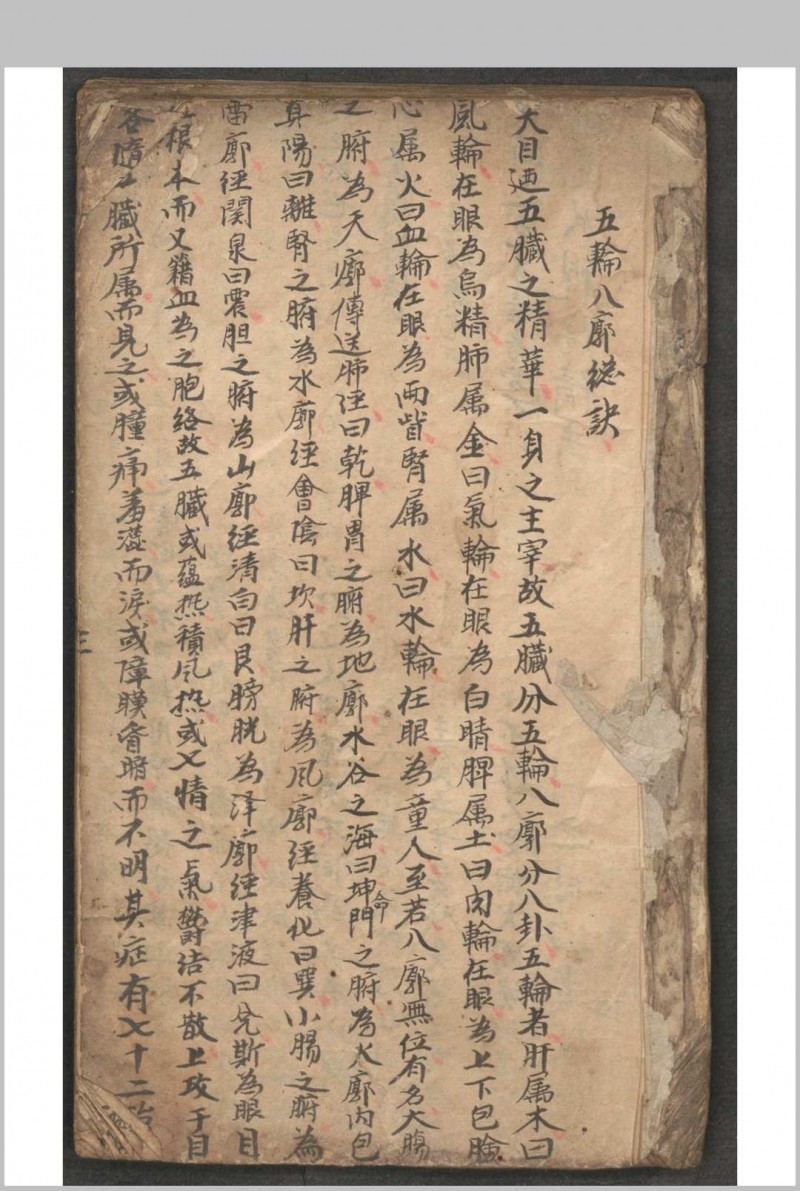 五輪八廓總訣
大目廼五臟之精華一身之主宰故五臟分五輪八廓分八卦五輪者肝属木曰
風輪在眼為烏精肺属金曰氣輪在眼為白睛脾属土曰肉輪在眼為上下包瞼
心属火曰血輪在眼為両眥腎属水曰水輪在眼為童人至若八廓無位有名大腸
之腑為天廓傳送肺経曰乾脾胃之腑為地廓水谷之海曰坤命門之腑為火廓内包
真陽曰離腎之腑為水廓経會陰曰坎肝之腑為風廓経養化曰巽小腸之腑為
雷廓経関泉曰震胆之腑為山廓経清白曰艮膀胱為泽廓経津液曰兌斯為眼目
根本而又籍血為之胞络故五臟或蕴热積风热或七情之氣欝结不散上攻于目
各隨五臟所属而見之或腫痛羞澁而淚或障膜昏暗而不明其症有七十二
三